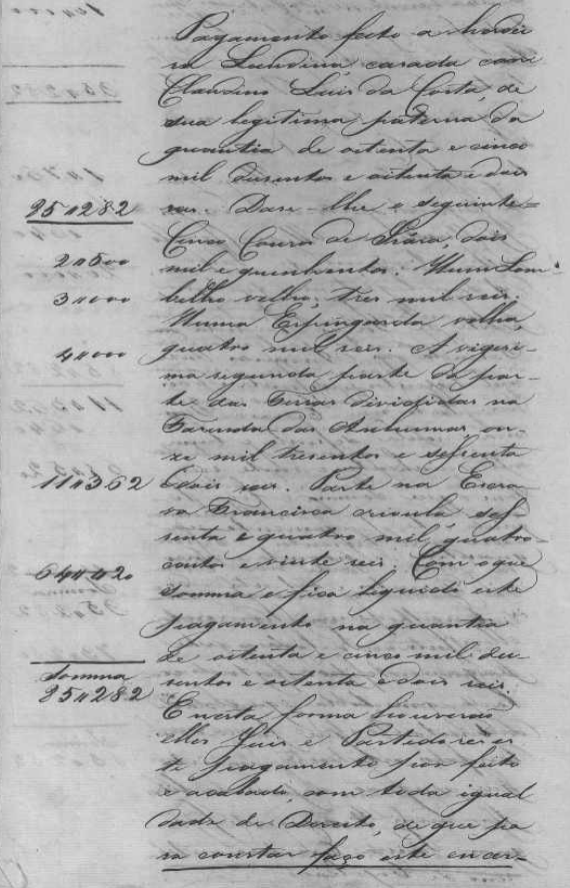 Pagamento feito a herdei
ra Laudina, casada com
Claudino Luis da Costa, de
sua legitima paterna da
quantia de oitenta e cinco
mil dusentos e oitenta e dois
85„282 reis. Dase-lhe o seguinte=
Cinco Couros de, dois
2„500 mil e quinhentos: Hum Lom-
3„000 bilho velho, tres mil reis:
Huma Espingarda velha,
4„000 quatro mil reis. A vigesi-
ma segunda parte da par-
te das Terras divididas na
Fazenda das, on-
ze mil tresentos e sessenta
11„362 e dois reis. Parte na Escra-
va Francisca crioula ses-
senta e quatro mil, quatro-
centos e vinte reis. Com o que
64„420 somma e fica liquido este
pagamento na quantia
de oitenta e cinco mil du-
Somma sentos e oitenta e dois reis.
85„282 E nesta forma houverão
elles Juis e Partidores es-
te pagamento por feito
e acabado, com toda igual
dade de Direito, de que pa
ra constar faço este encer-